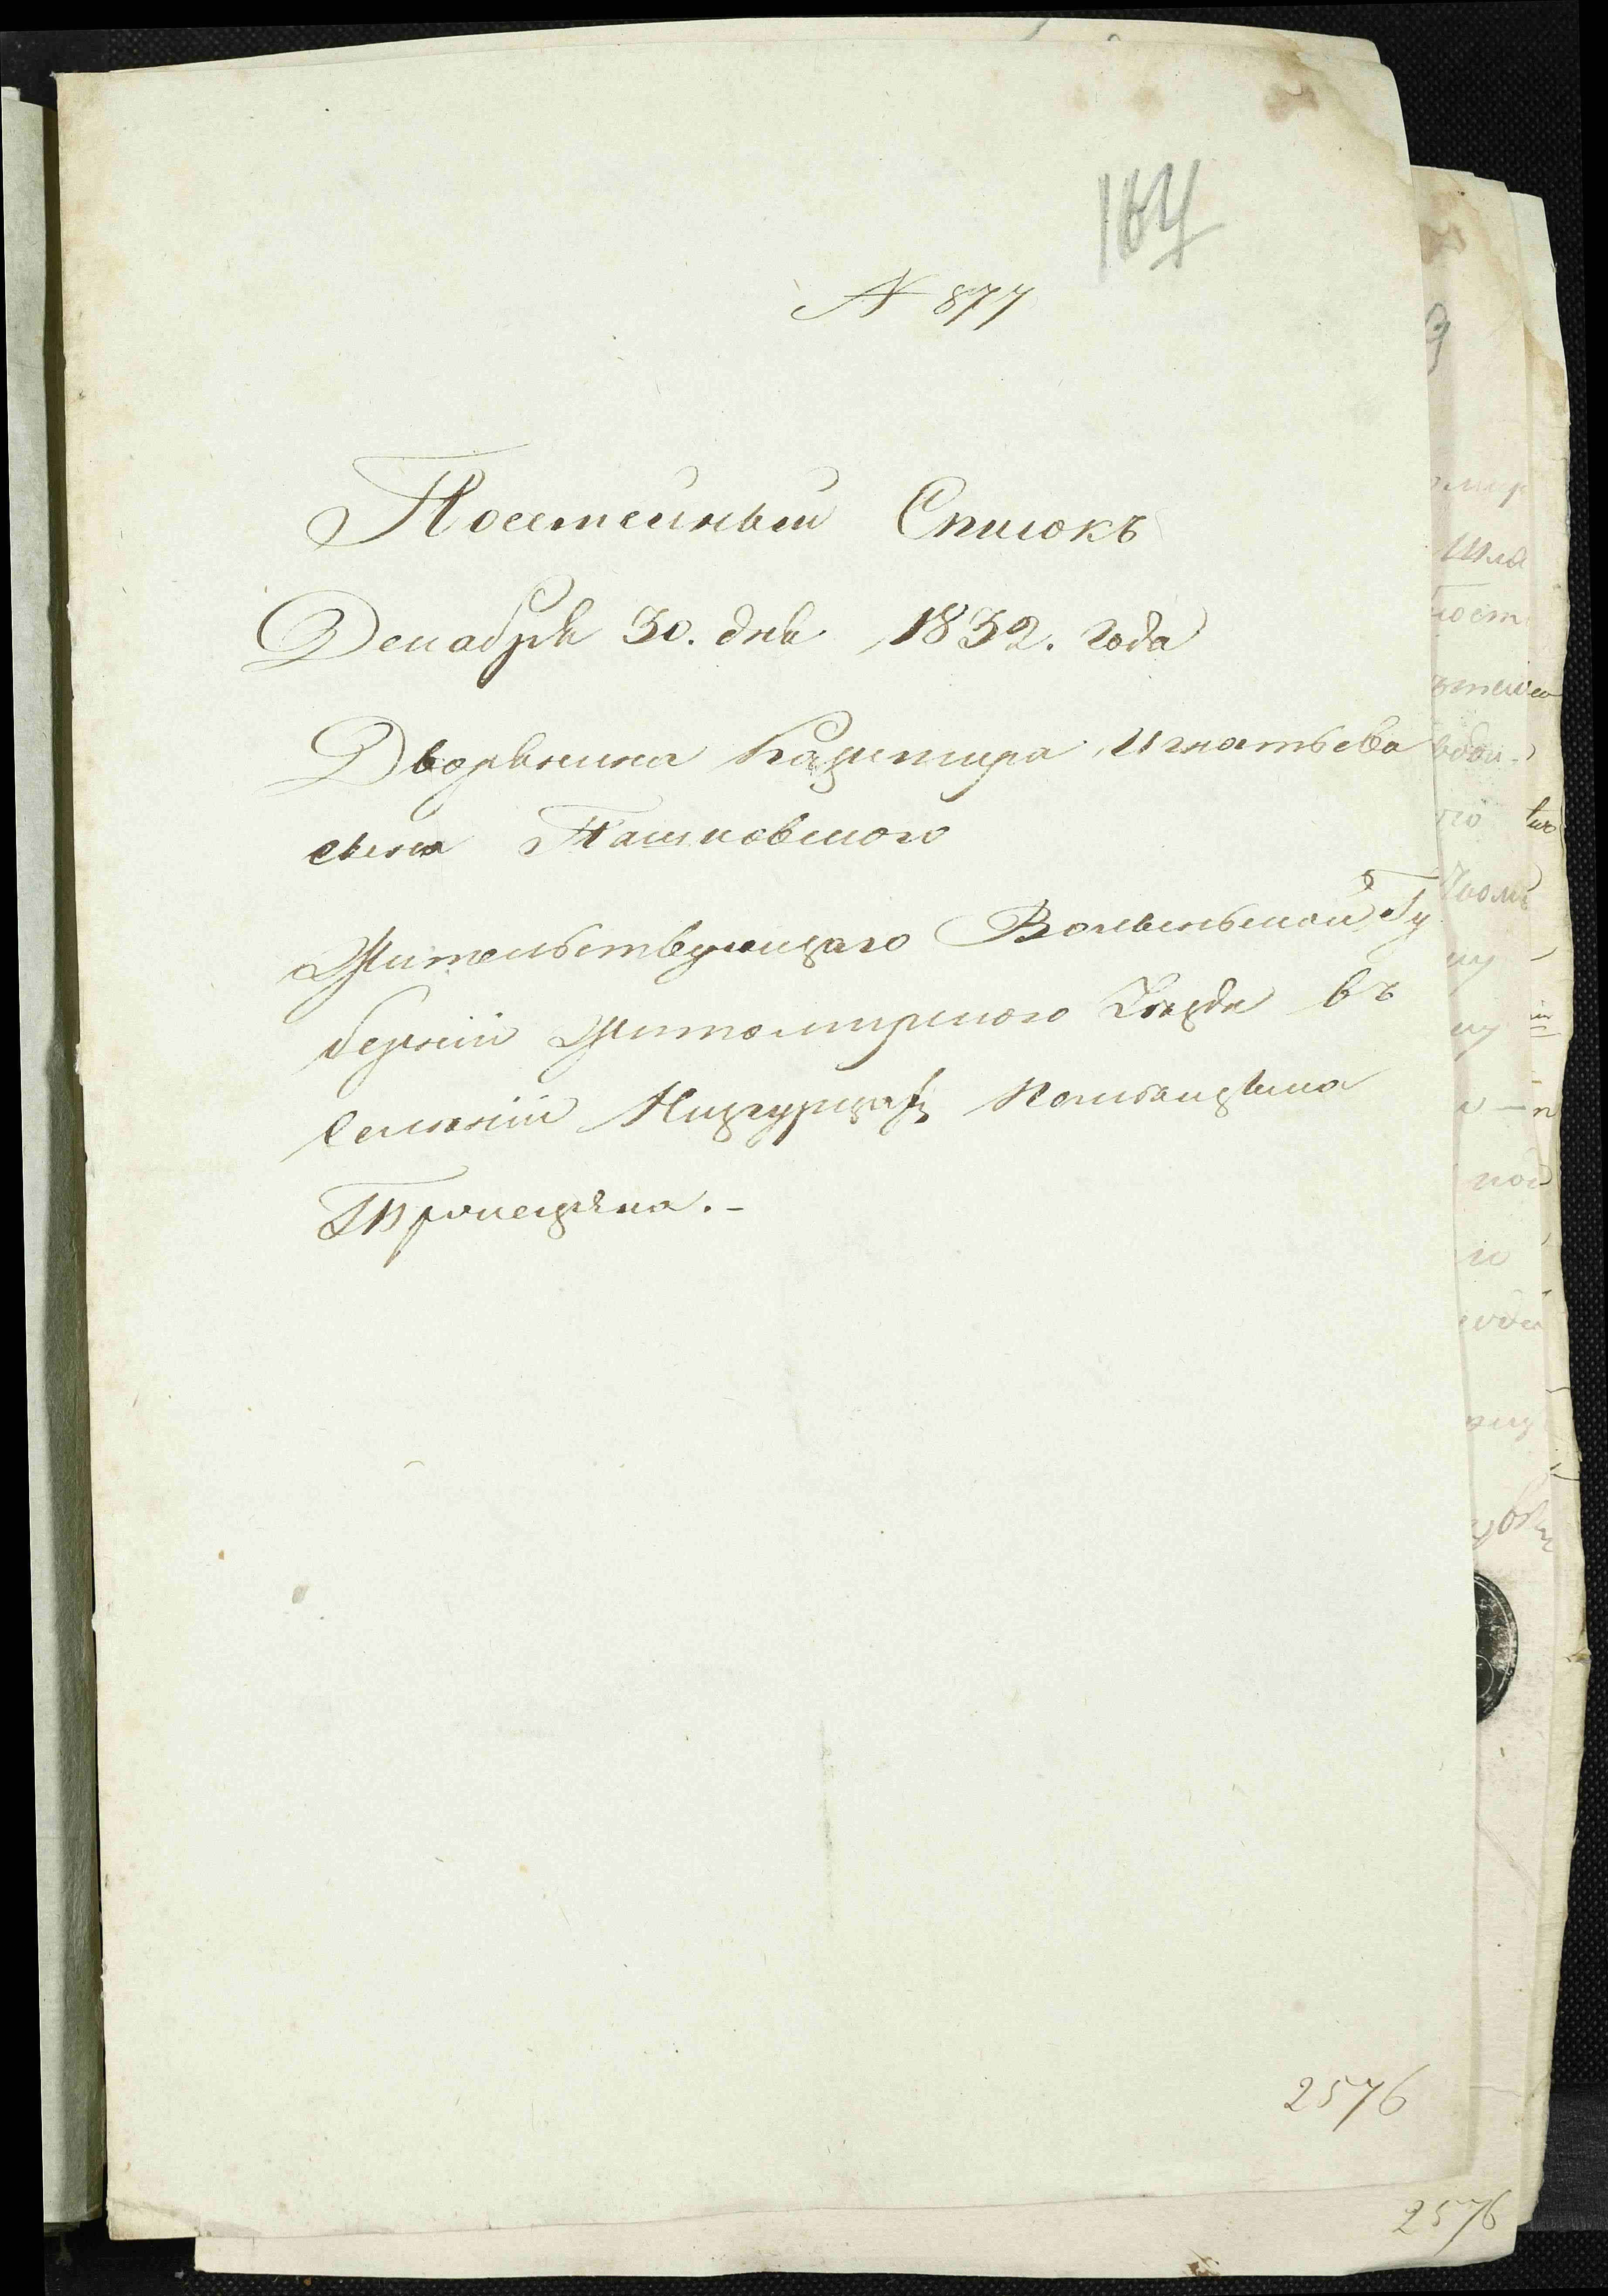 164
N 877
Посемейный Списокъ
Декабря 30. дня 1832. года
Дворянина Казимира Игнатьева
сына Пашковского
Жительствующаго Волынской Гу
берніи Житомирского Уезда въ
Селеніи
2576
2576